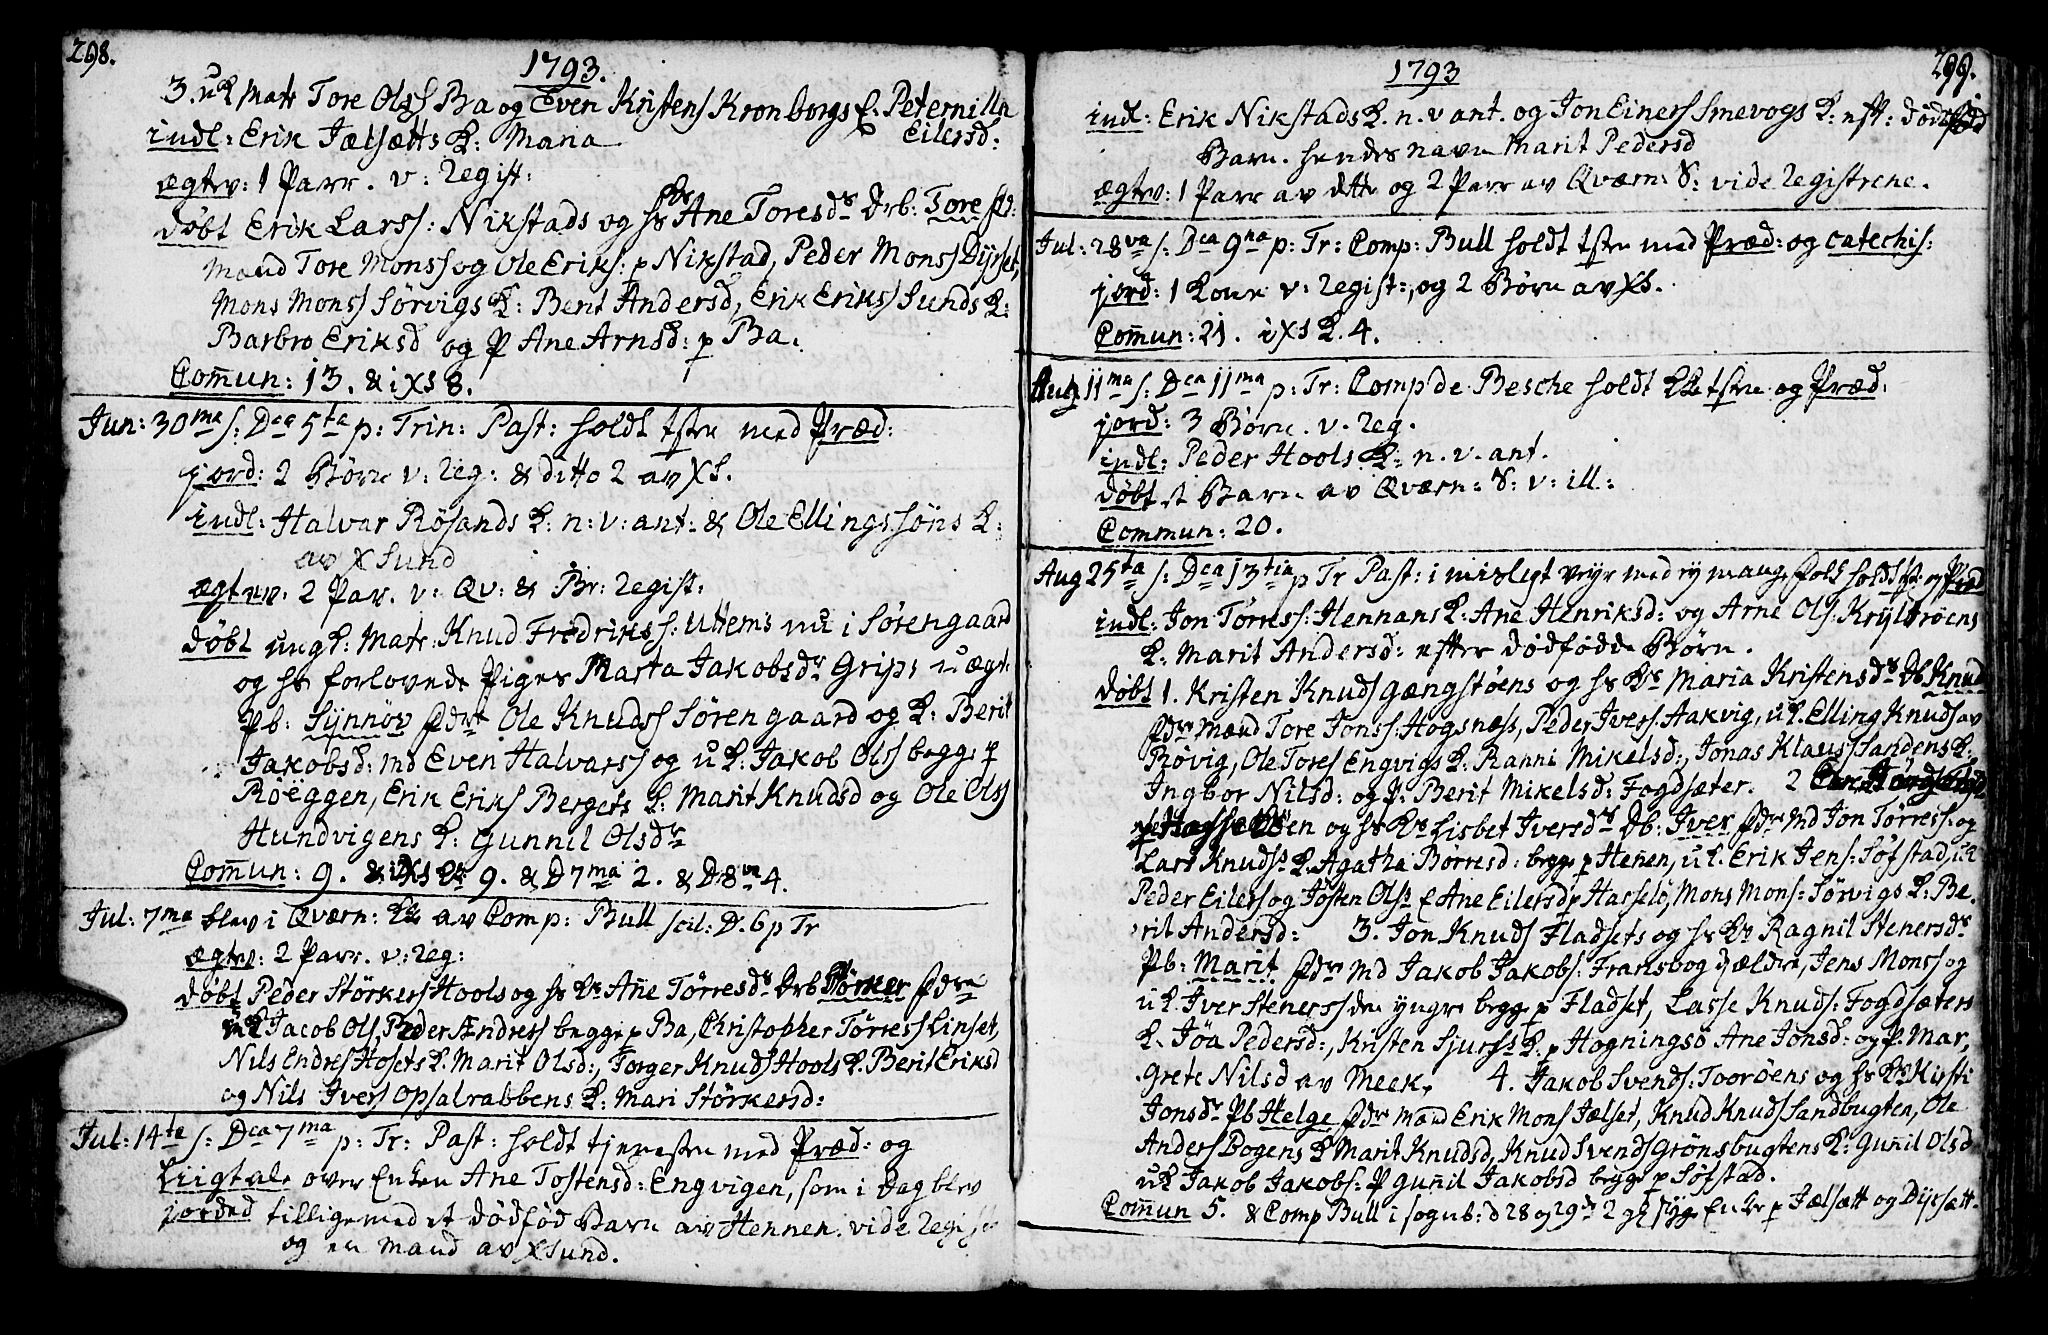 298.
1793.
3. uK Matr Tore Olss Ba og Even Kristens Kronborgs E: Peternilla
indl: Erik Jælsætts K: Maria Eilersd:
ægtev: 1 Parr. v: Regist:
døbt Erik Larss: Nikstads og hs Kes Ane Toresdr Drb: Tore fd:
Mand Tore Monss og Ole Eriks: p Nikstad, Peder Monss Dyrset,
Mons Monss Sørvigs K: Berit Andersd, Erik Erikss Sunds K:
Barbro Eriksd og P Ane Arnsd: p Ba.
Comun: 13. & iXs 8.
Jun: 30ma s: Dca 5ta p: Trin: Past: holdt tste med Præd:
jord: 2 Børn v: Reg: & ditto 2 av XS.
indl: Halvar Rösands K: n: v: ant. & Ole Ellingssöns K:
av X Sund
ægtev: 2 Par. v: Qv: & Br: Regist:
døbt ungk: Matr: Knud Fredrikss: Uttems nu i Sörengaard
og hs forlovede Piges Marta Jakobsdr Grips uægt.
Pb: Synnöv fdrt Ole Knudss Sörengaard og K: Berit
Jakobsd: Md Even Halvarss og uK: Jakob Olss begge p
Röeggen, Erik Eriks Bergets K: Marit Knudsd og Ole Olss
Hundvigens K: Gunnil Olsdr
Comun: 9. & iXs 9. & D 7ma 2. & D 8va 4.
Jul: 7ma blev i Qværn: Kke av Comp: Bull scil: D. 6 p Tr
ægtev: 2 Parr. v: Reg:
døbt Peder Störkers Hools og hs Ks Ane Törresdr Drb Störker fdre
uK Jacob Ols, Peder Andress begge p Ba, Christopher Törress Linset,
Nils Endres Hosets K. Marit Olsd:, Torger Knuds Hools K. Berit Eriksd
og Nils Ivers Opsalrabbens K: Mari Störkersd:
Jul: 14te s: Dca 7ma p: Tr: Past: holdt tjenesten med Præd: og
Liigtale over Enken Ane Tostensd: Engvigen, som i Dag blev
jorded tilligemed et dødfød Barn av Hennen. vide Regist
og en Mand av XSund.
299.
1793
indl: Erik Nikstads K. n. v ant. og Jon Einers Smevogs K: eft: dødfød
Barn. hendes navn Marit Pedersd
ægtev: 1 Parr av dtte og 2 Parr av Qværn: S: vide Registrene.
Jul: 28va s: Dca 9na p: Tr: Comp: Bull holdt tste med Præd: og catechis:
jord: 1 Kone v: Regist:, og 2 Børn av XS.
Comun: 21. iXs K. 4.
Aug 11ma s: Dca 11ma p: Tr: Comp de Besche holdt KKetste og Præd:
jord: 3 Børn. v. Reg.
indl: Peder Hools K: n. v. ant.
døbt et Barn av Qværn: S: v: ill:
Commun: 20.
Aug 25ta s: Dca 13tia p Tr Past: i misligt veyr med ey mange folk holdt tst: og Præd
indl: Jon Törress: Hennans K: Ane Henriksd: og Arne Ols: Kryltröens
K: Marit Andersd: efter dødfødde Børn.
døbt 1. Kristen Knuds Gængstöens og hs Ks Maria Kristensdr Db Knud
fdre Mænd Tore Jonss: Hogsnæss, Peder Ivers: Aakvig, uK. Elling Knuds av
Rövig, Ole Tores Engvigs K: Ranni Mikelsd:, Jonas Klauss Sandens K:
Ingbor Nilsd: og P: Berit Mikelsd: Fogdsæter. 2
og hs Ks Lisbet Iversdr Db: Iver fdre Md Jon Törress. og
Lars Knudss K. Agatha Börresd: begge p Henen, uK. Erik Jens: Söfstad, uK
Peder Eilers og Jösten Olss E Ane Eilersd p Harselö, Mons Mons: Sörvigs K: Be-
rit Andersd: 3. Jon Knuds Fladsets og hs Ks Ragnil Stenersdr
Pb: Marit fdre Md Jakob Jakobs: Fransbog ældre, Jens Monss og
uK Iver Stenerss den yngre begge p Fladset, Lasse Knuds: Fogdsæters
K. Jöa Pedersd:, Kristen Sjurss K. p Hogningsö Ane Jonsd: og P. Mar,
grete Nilsd av Meek. 4. Jakob Svends: Tooröens og hs Ks Kirsti
Jonsdr Pb Helge fdre Mænd Erik Mons Jælset, Knud Knuds Sandbugten, Ole
Anders Bogens K Marit Knudsd, Knud Svends Grönsbugtens K: Gunil Olsd
uK Jakob Jakobs: P Gunil Jakobsd begge p Söfstad.
Comun 5. & Comp Bull i sognb: d 28 og 29de 2 gl syge Enker p Jælsætt og Dyrsætt.